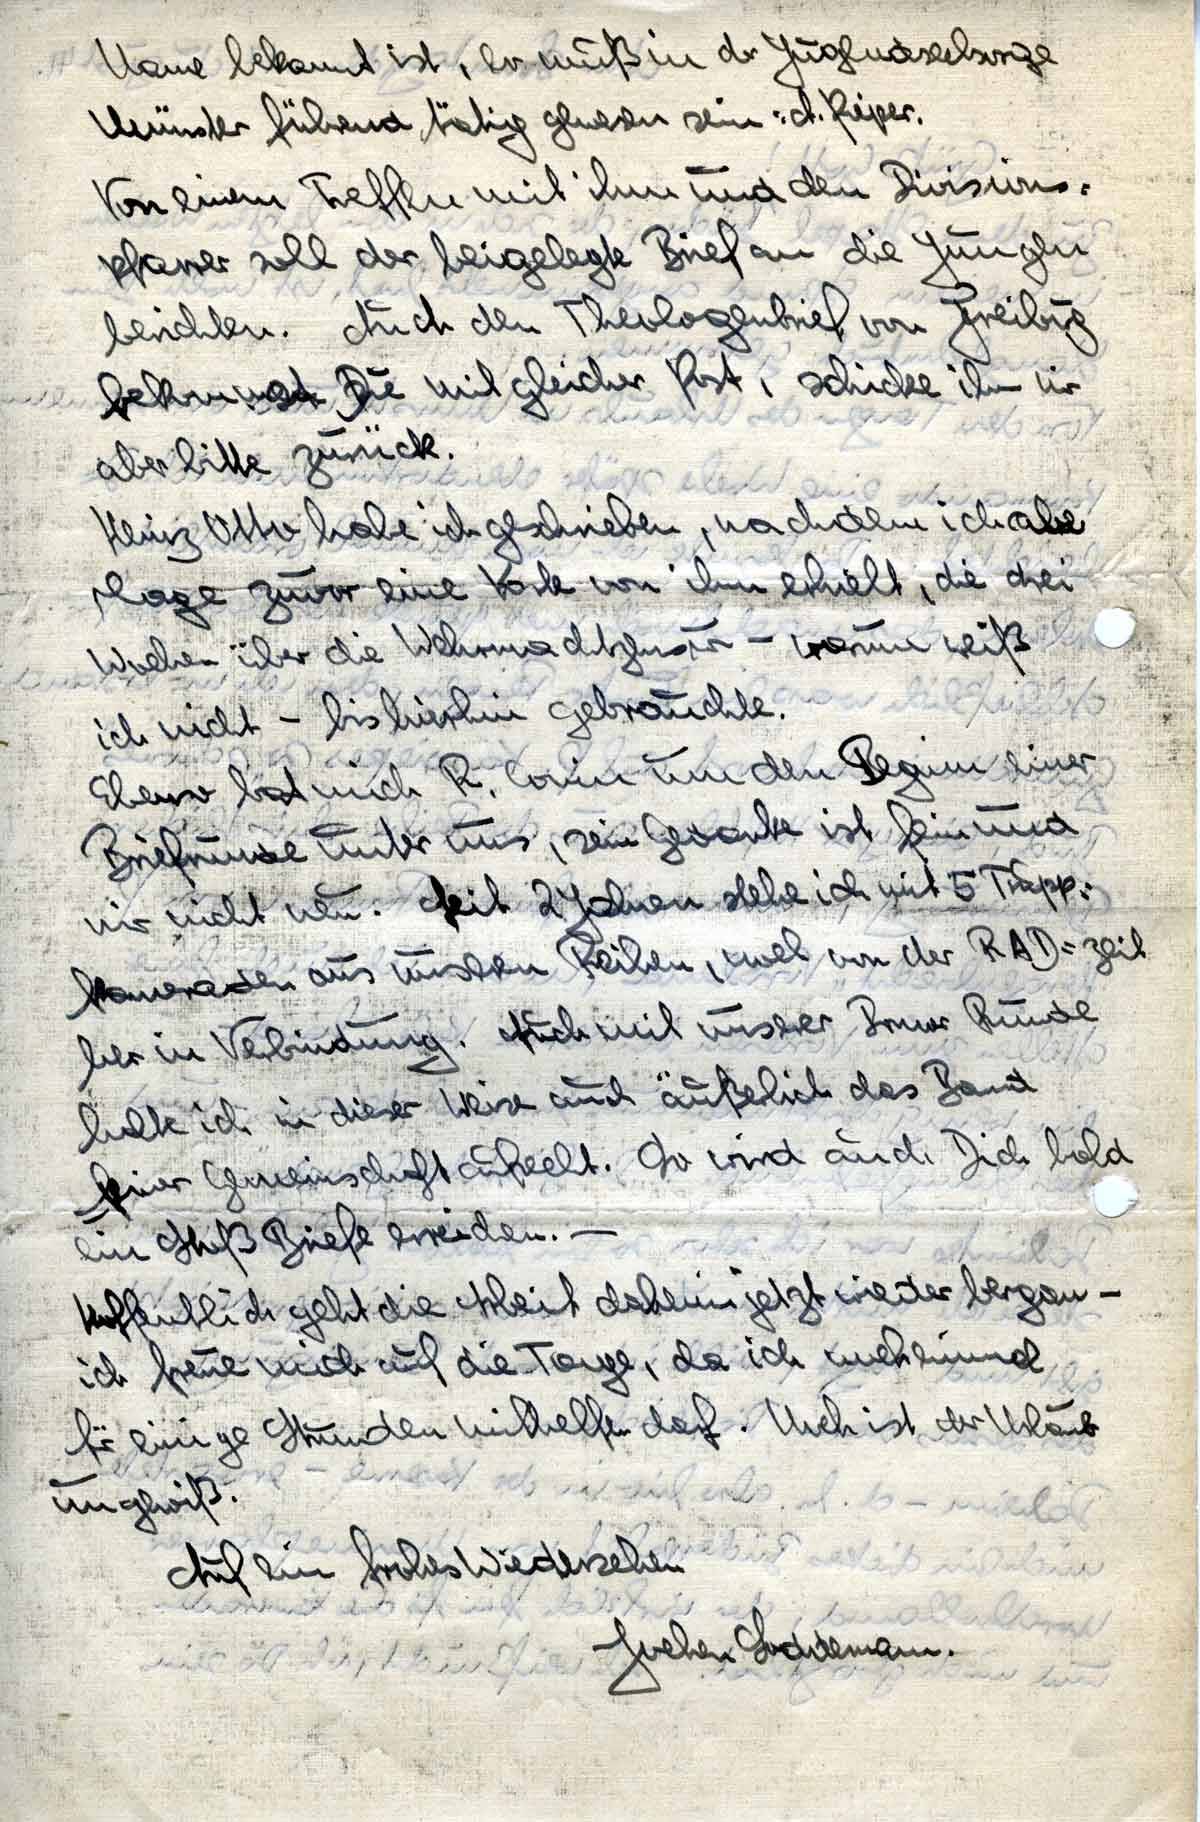 Name bekannt ist, er muß in der Jugendseelsorge
Münster führend tätig gewesen sein: A. Pieper.
Von einem Treffen mit ihm und dem Divisions-
pfarrer soll der beigelegte Brief an die Jungen
berichten. Auch den Theologenbrief von Freiburg
bekommst Du mit gleicher Post, schicke ihn mir
aber bitte zurück.
Heinz Otto habe ich geschrieben, nachdem ich
Tage zuvor eine Karte von ihm erhielt, die drei
Wochen über die Wehrmachtszensur – warum weiß
ich nicht – bis hierhin gebrauchte.
Ebenso bat mich R. um den Beginn einer
Briefrunde unter uns, sein Gedanke ist fein und
mir nicht neu. Seit 2 Jahren stehe ich mit 5 Trupp-
kameraden aus unseren Reihen, von der RAD-zeit
her in Verbindung. Auch mit unserer Runde
halte ich in dieser Weise auch äußerlich das Band
feiner Gemeinschaft aufrecht. So wird auch Dich bald
ein Stoß Briefe erreichen. –
Hoffentlich geht die Arbeit daheim jetzt wieder bergan –
ich freue mich auf die Tage, da ich
für einige Stunden mithelfen darf. Noch ist der Urlaub
ungewiß.
Auf ein frohes Wiedersehen
Jochen